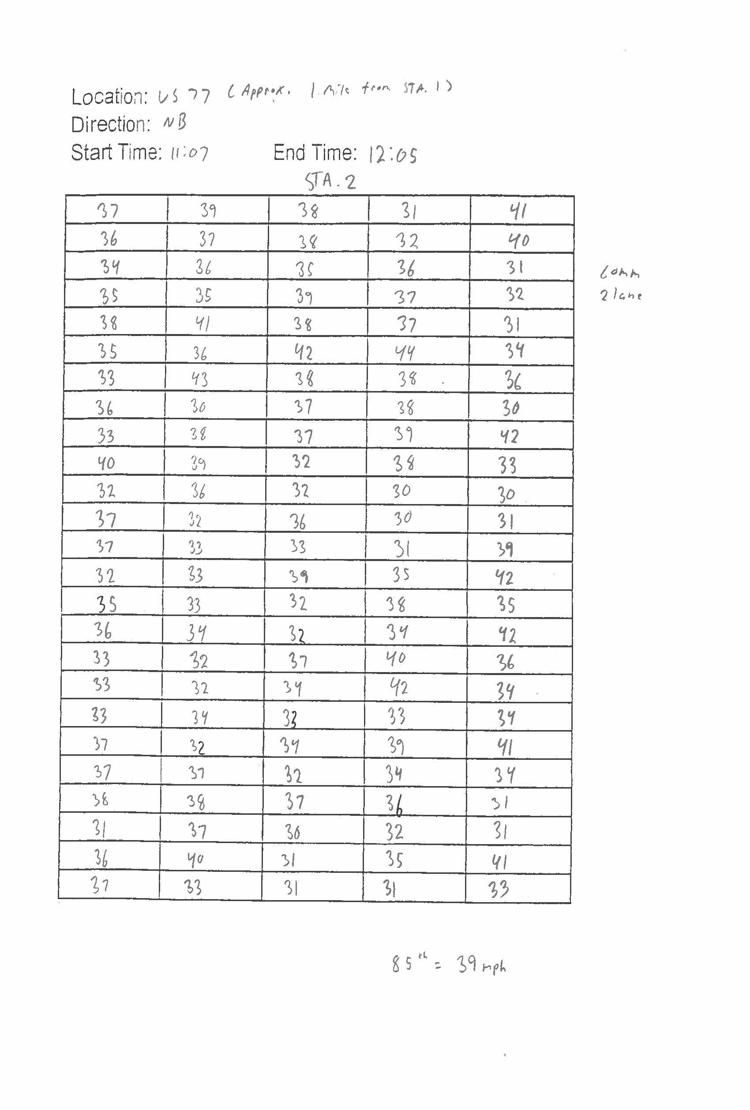 Location: US 77 (Approx. 1 mile from STA. 1)
Direction: NB
Start Time: 11:07 End Time: 12:05
STA. 2
37 39 38 31 41
36 37 38 32 40
34 36 35 36 31
Comm
35 35 39 37 32
2 lane
38 41 38 37 31
35 36 42 44 34
33 43 38 38 36
36 30 37 38 30
33 38 37 39 42
40 39 32 38 33
32 36 32 30 30
37 32 36 30 31
37 33 33 31 39
32 33 39 35 42
35 33 32 38 35
36 34 32 34 42
33 32 37 40 36
33 32 34 42 34
33 34 33 33 34
37 32 34 39 41
37 37 32 34 34
38 38 37 36 31
31 37 30 32 31
36 40 31 35 41
37 33 31 31 33
85th = 39 mph